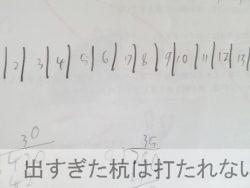 2 3 4 5 6 7 8 9 10 11 12 13
30
35
出すぎた杭は打たれない